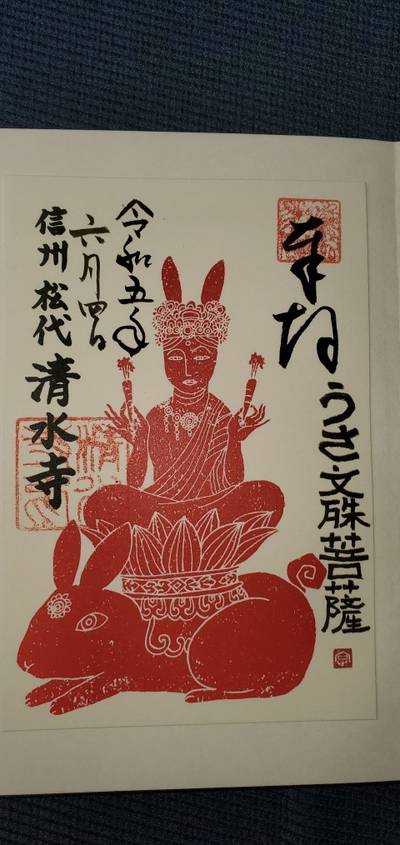 奉拝
うさ文殊菩薩
令和五年
六月四日
信州 松代 清水寺